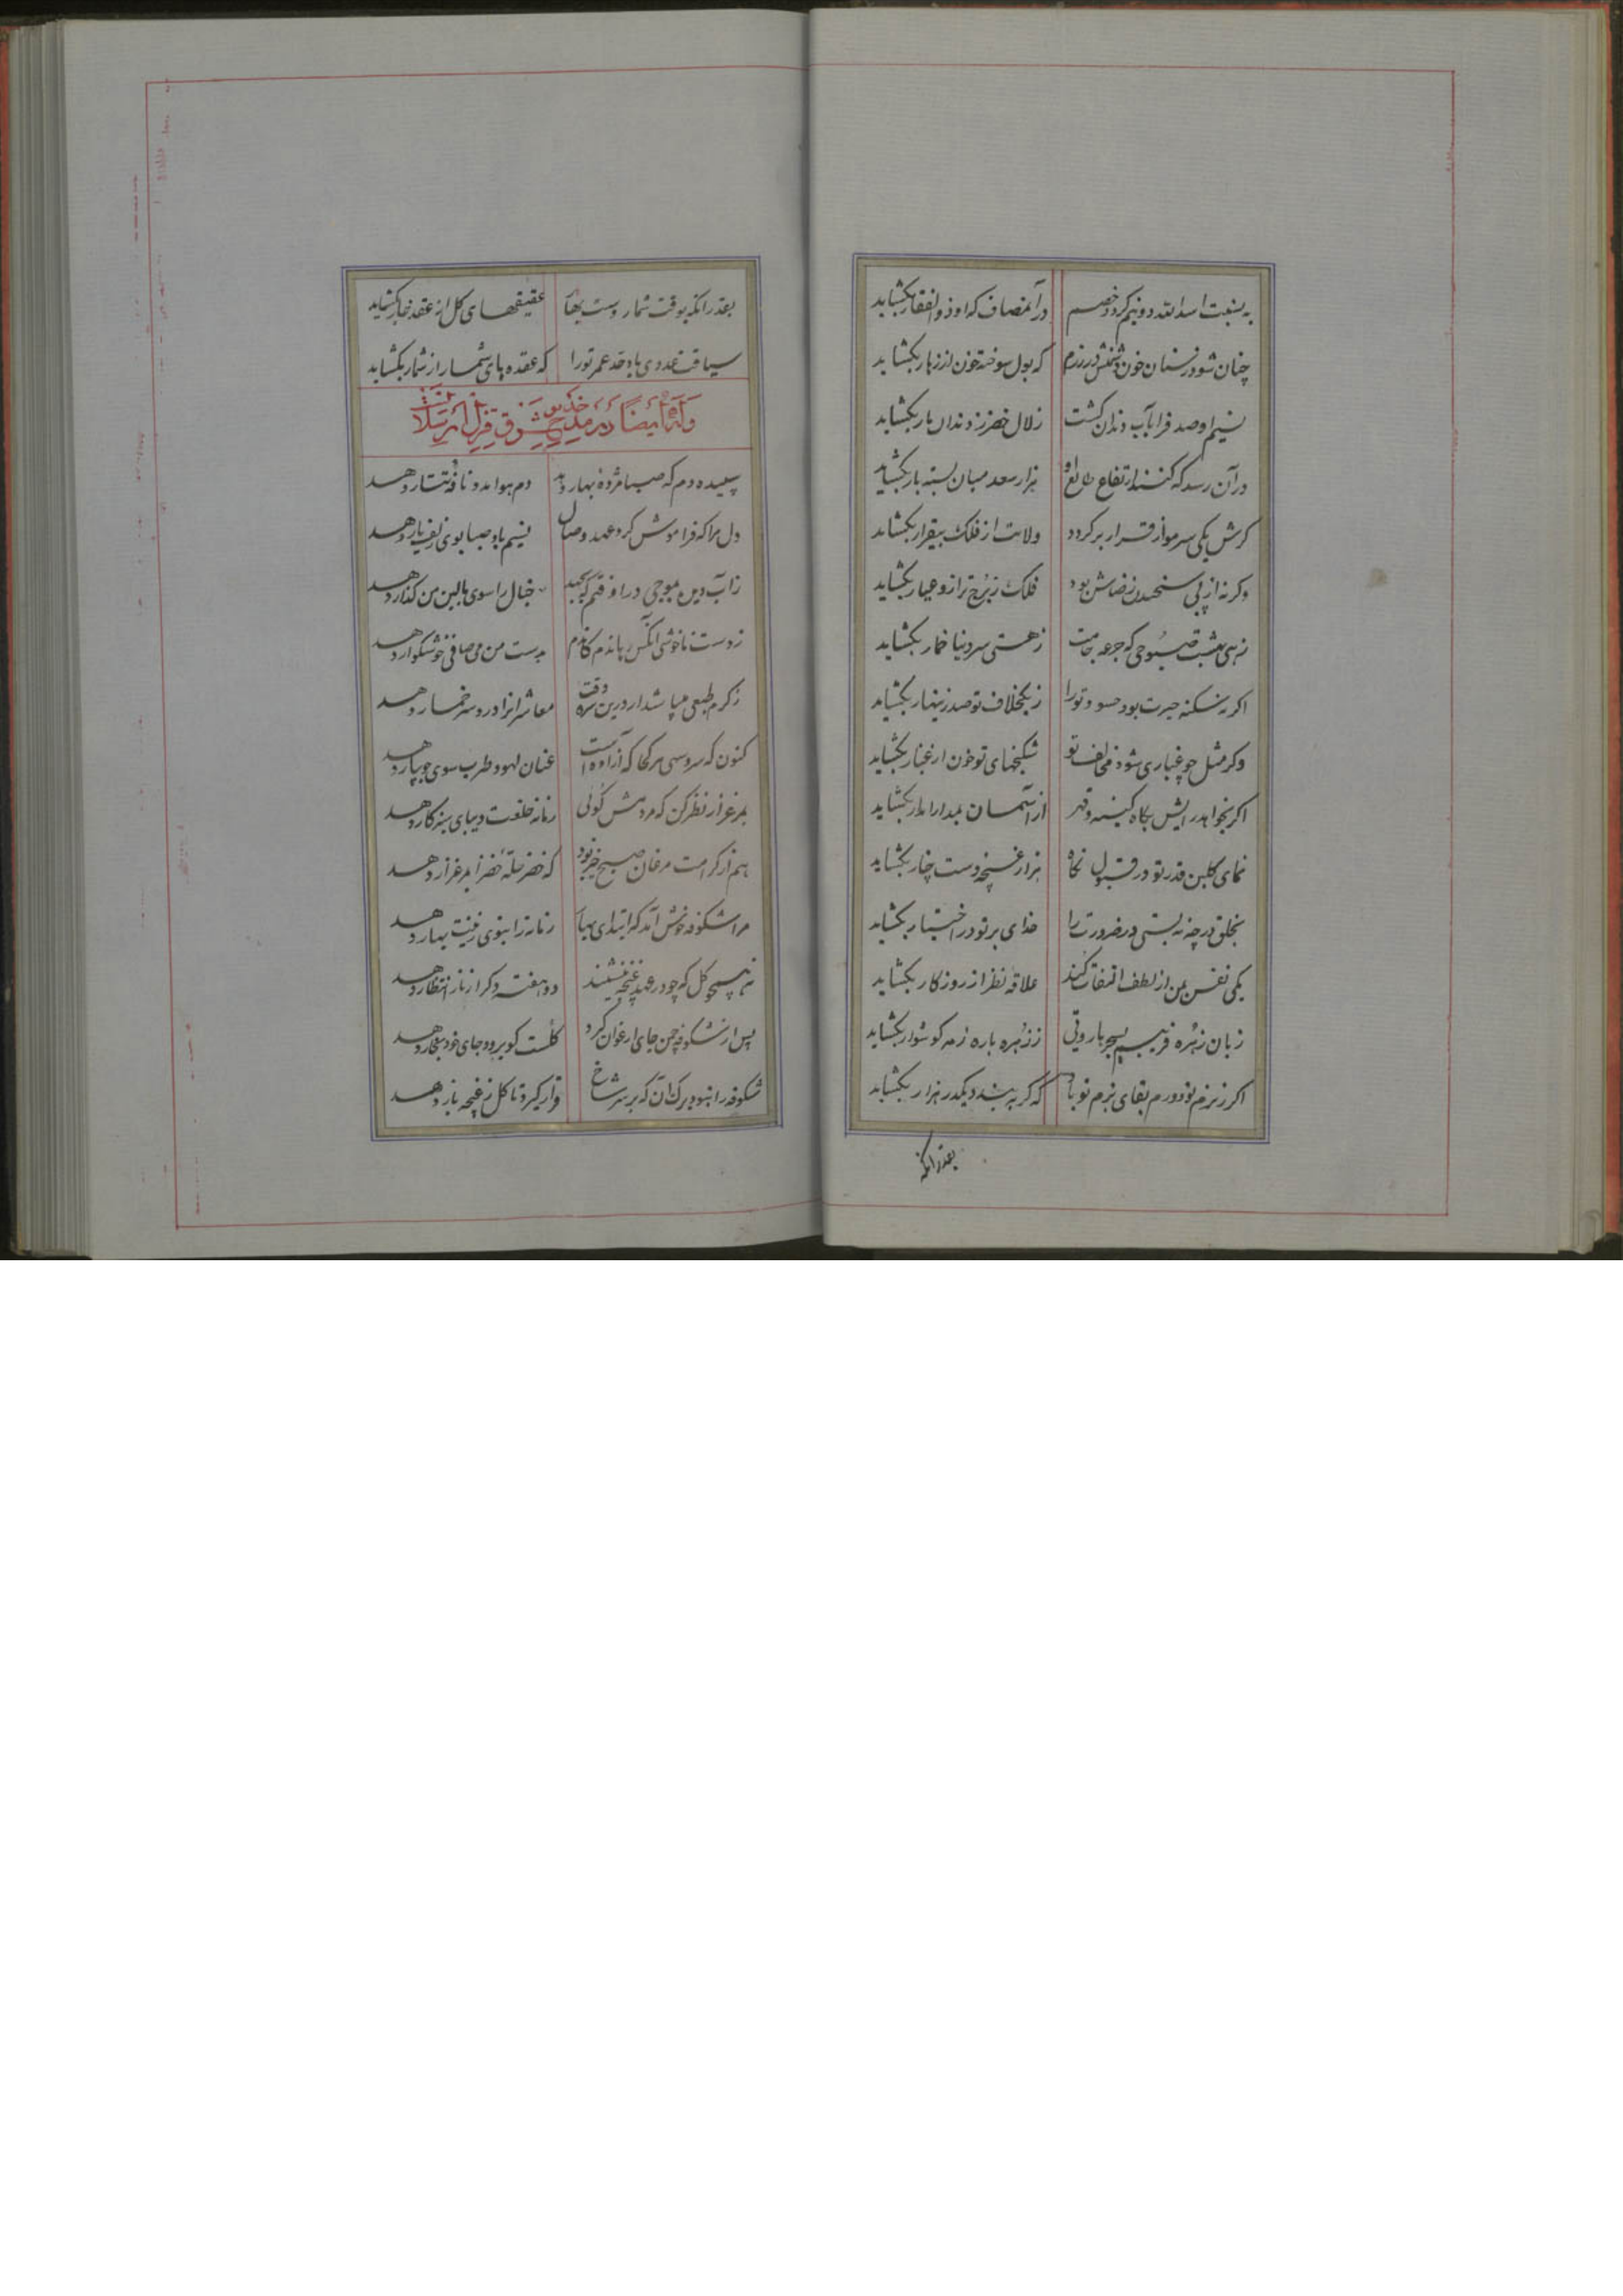 به نسبت اسد الله دو نیم کردد خصم در آنمصاف که او ذوالفقار بکشاید
چنان شود ز سنان خون دشمنش در رزم که بول سوخته خون از زهار بکشاید
نسیم او صدف را بآب دندان کشت زلال خضر ز دندان مار بکشاید
در آن رسد که کنند ارتفاع طالع او هزار سعد میان بسته بار بکشاید
کرش یکی سر مو از قرار برکردد ولایت از فلک بیقرار بکشاید
وکرنه از پی سنجیدن رضاش بود فلک ز برج ترازو عیار بکشاید
زهی بعشت صبوحی که جرعه جامت ز هستی سر دنیا خمار بکشاید
اکر نه سکنه حیرت بود حسود تو را ز یکخلاف تو صد زینهار بکشاید
وکر مثل چو غباری شود مخالف تو شکنجهای تو خون از غبار بکشاید
اکر بخواهد رایش بکاه کینه و قهر از آسمان بمدارا مدار بکشاید
نمای کلبن قدر تو در قبول نکاه هزار غنچه ز دست چنار بکشاید
بخلق در چه نه بستی در ضرورت را خدای بر تو در اختیار بکشاید
یکی نفس بمن از لطف التفات کند علاقه نظر از روزکار بکشاید
زبان زهره فریبم بسحر هاروتی ز زهره یاره ز مه کوشوار بکشاید
اکر ز بزم تو دورم بقای بزم تو باد که کر به بندد یکدر هزار بکشاید
بقدر آنکه
بقدر آنکه بوقت شمار دست بهار عقیقهای کل از عقد خار بکشاید
سیاقت عددی باد حد عمر تو را که عقده پای شمار از شمار بکشاید
وله ایضا در مدح خدیو شرق قزل ارسلان
سپیده دم که صبا مژده بهار دهد دم هوا مدد نافه تتار دهد
دل مرا که فراموش کرد عهد وصال نسیم باد صبا بوی زلف یار دهد
ز آب دیده بموجی در اوفتم که بجهد خیال را سوی بالین من کذار دهد
ز دست ناخوشی آنکس رهاندم کاندم بدست من می صافی خوشکوار دهد
ز کرم طبعی میباشد ار درین سره وقت معاشرانرا درد سر خمار دهد
کنون که سرو سهی هر کجا که آزاده است عنان لهو و طرب سوی جویبار دهد
بمرغزار نظر کن که مردمش کوئی زمانه خلعت دیبای سبز کار دهد
هم از کرامت مرغان صبح خیز بود که خضر حله خضرا بمرغزار دهد
مرا شکوفه خوش آمد که ابتدای بهار زمانه را بنوی زینت بهار دهد
نه همچو کل که چو در عهد غنچه بنشیند دو هفته دکر از ناز انتظار دهد
پس از شکوفه چمن جای ارغوان کرد کلست کو برود جای خود بخار دهد
شکوفه را نبود برک آن که بر سر شاخ قرار کیرد تا کل ز غنچه بار دهد